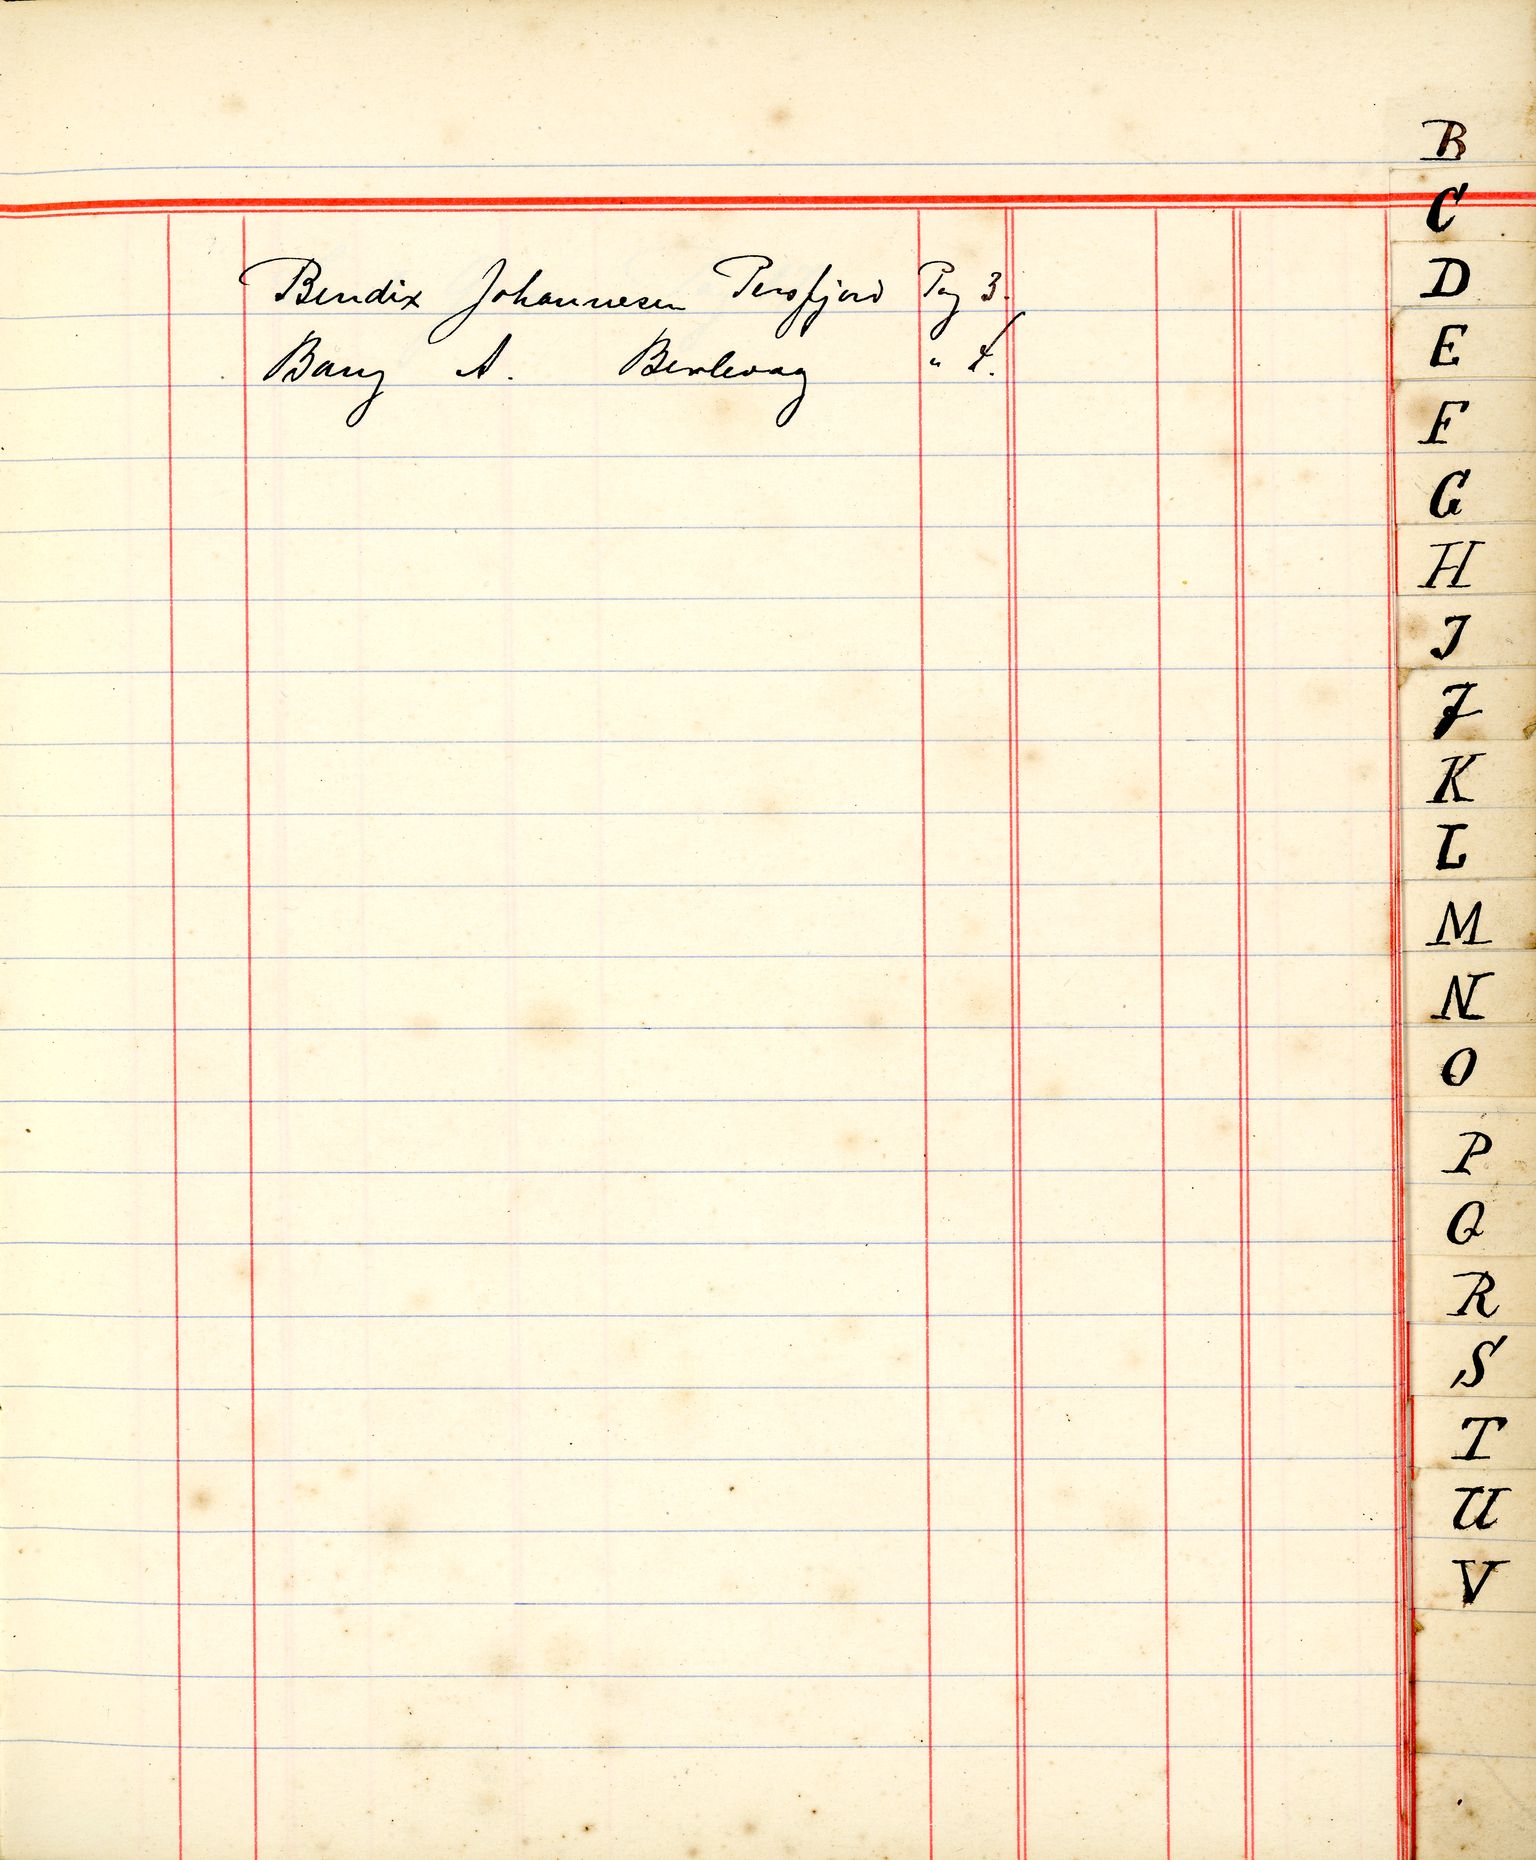 B
C
Bendix Johannesen Persfjord Pag 3.
D
Bang A. Berlevag " 4.
E
F
G
H
I
J
K
L
M
N
O
P
Q
R
S
T
U
V